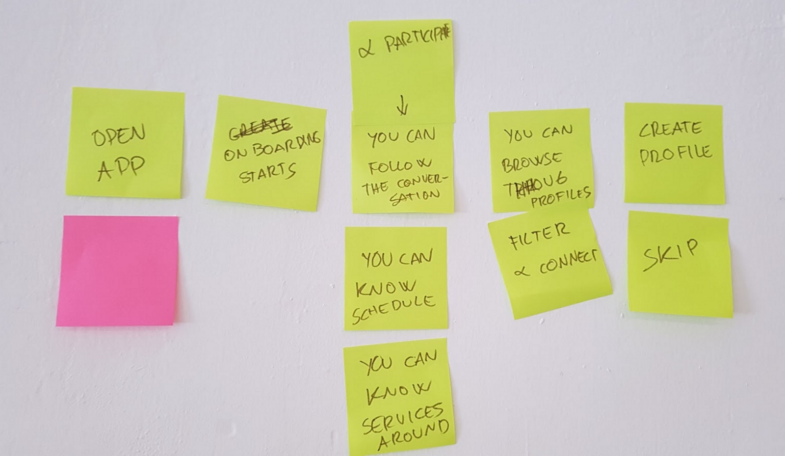 OPEN
APP
CREATE
ON BOARDING
STARTS
& PARTICIPA
YOU CAN
FOLLOW
THE CONVER-
SATION
YOU CAN
KNOW
SCHEDULE
YOU CAN
KNOW
SERVICES
AROUND
YOU CAN
BROWSE
THOUG
PROFILES
FILTER
& CONNECT
CREATE
PROFILE
SKIP